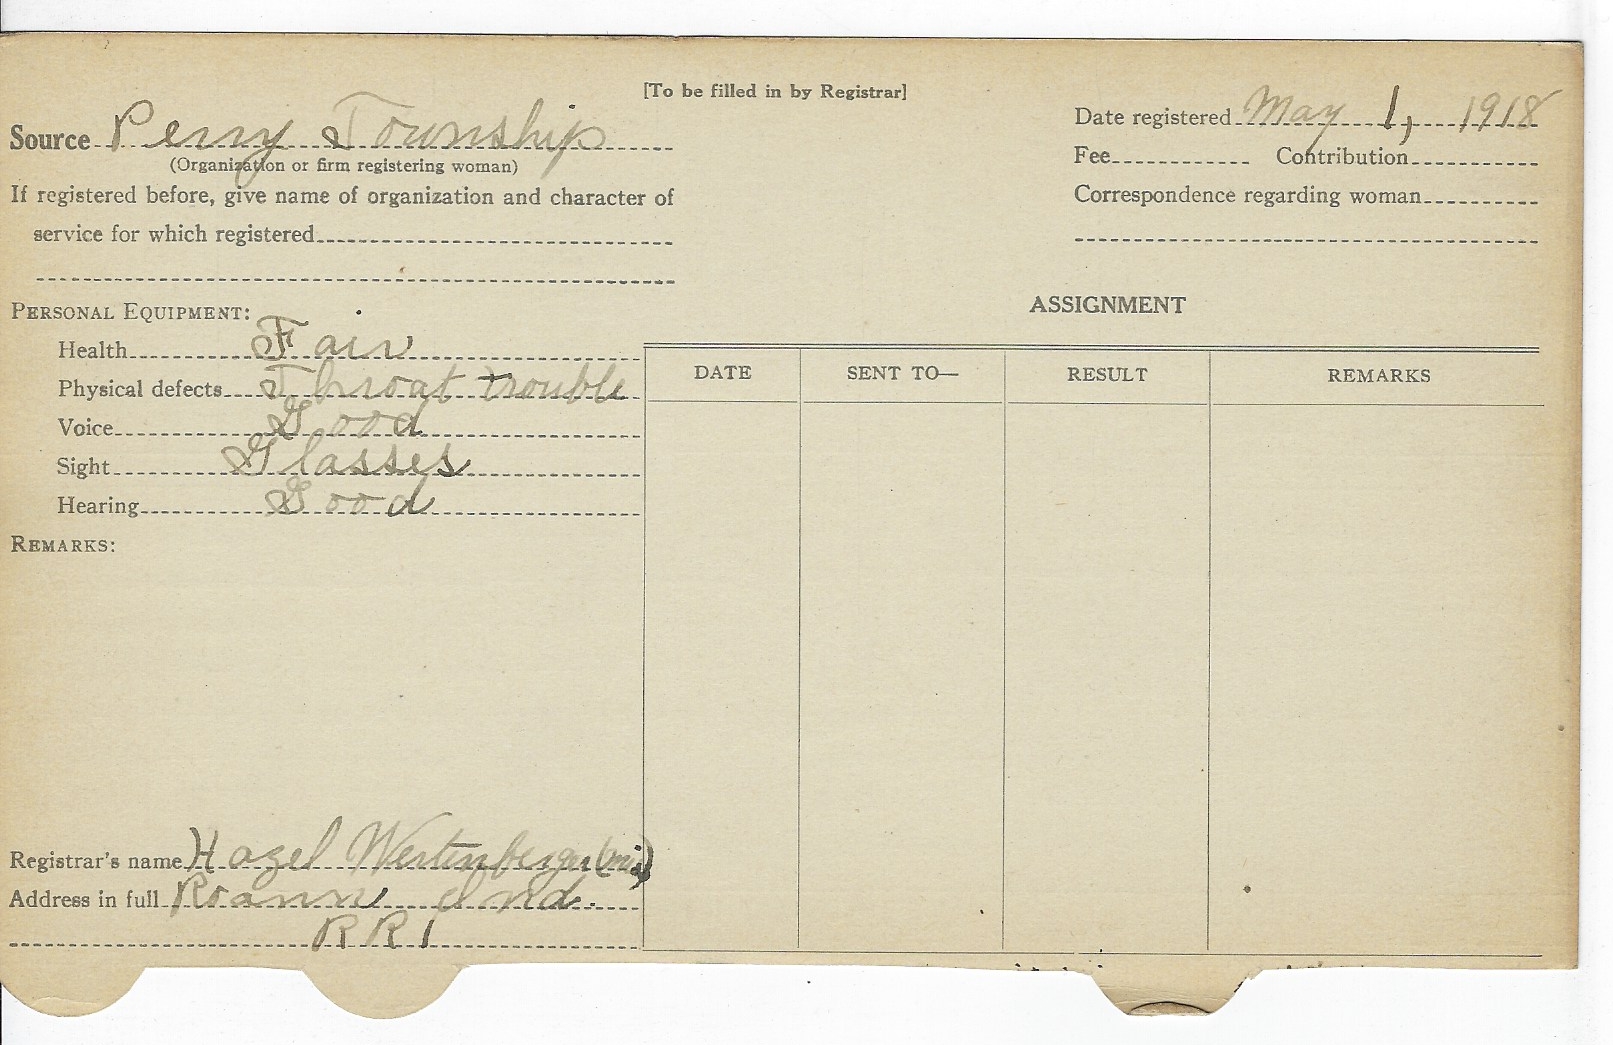 [To be filled in by Registrar]
Source Perry Township
(Organization or firm registering woman)
If registered before, give name of organization and character of
service for which registered
Date registered May 1, 1918
Fee Contribution
Correspondence regarding woman
PERSONAL EQUIPMENT:
Health Fair
Physical defects Throat trouble
Voice Good
Sight Glasses
Hearing Good
REMARKS:
ASSIGNMENT
DATE SENT TO— RESULT REMARKS
Registrar's name Hazel Wertenberger
Address in full Roann Ind.
R R 1